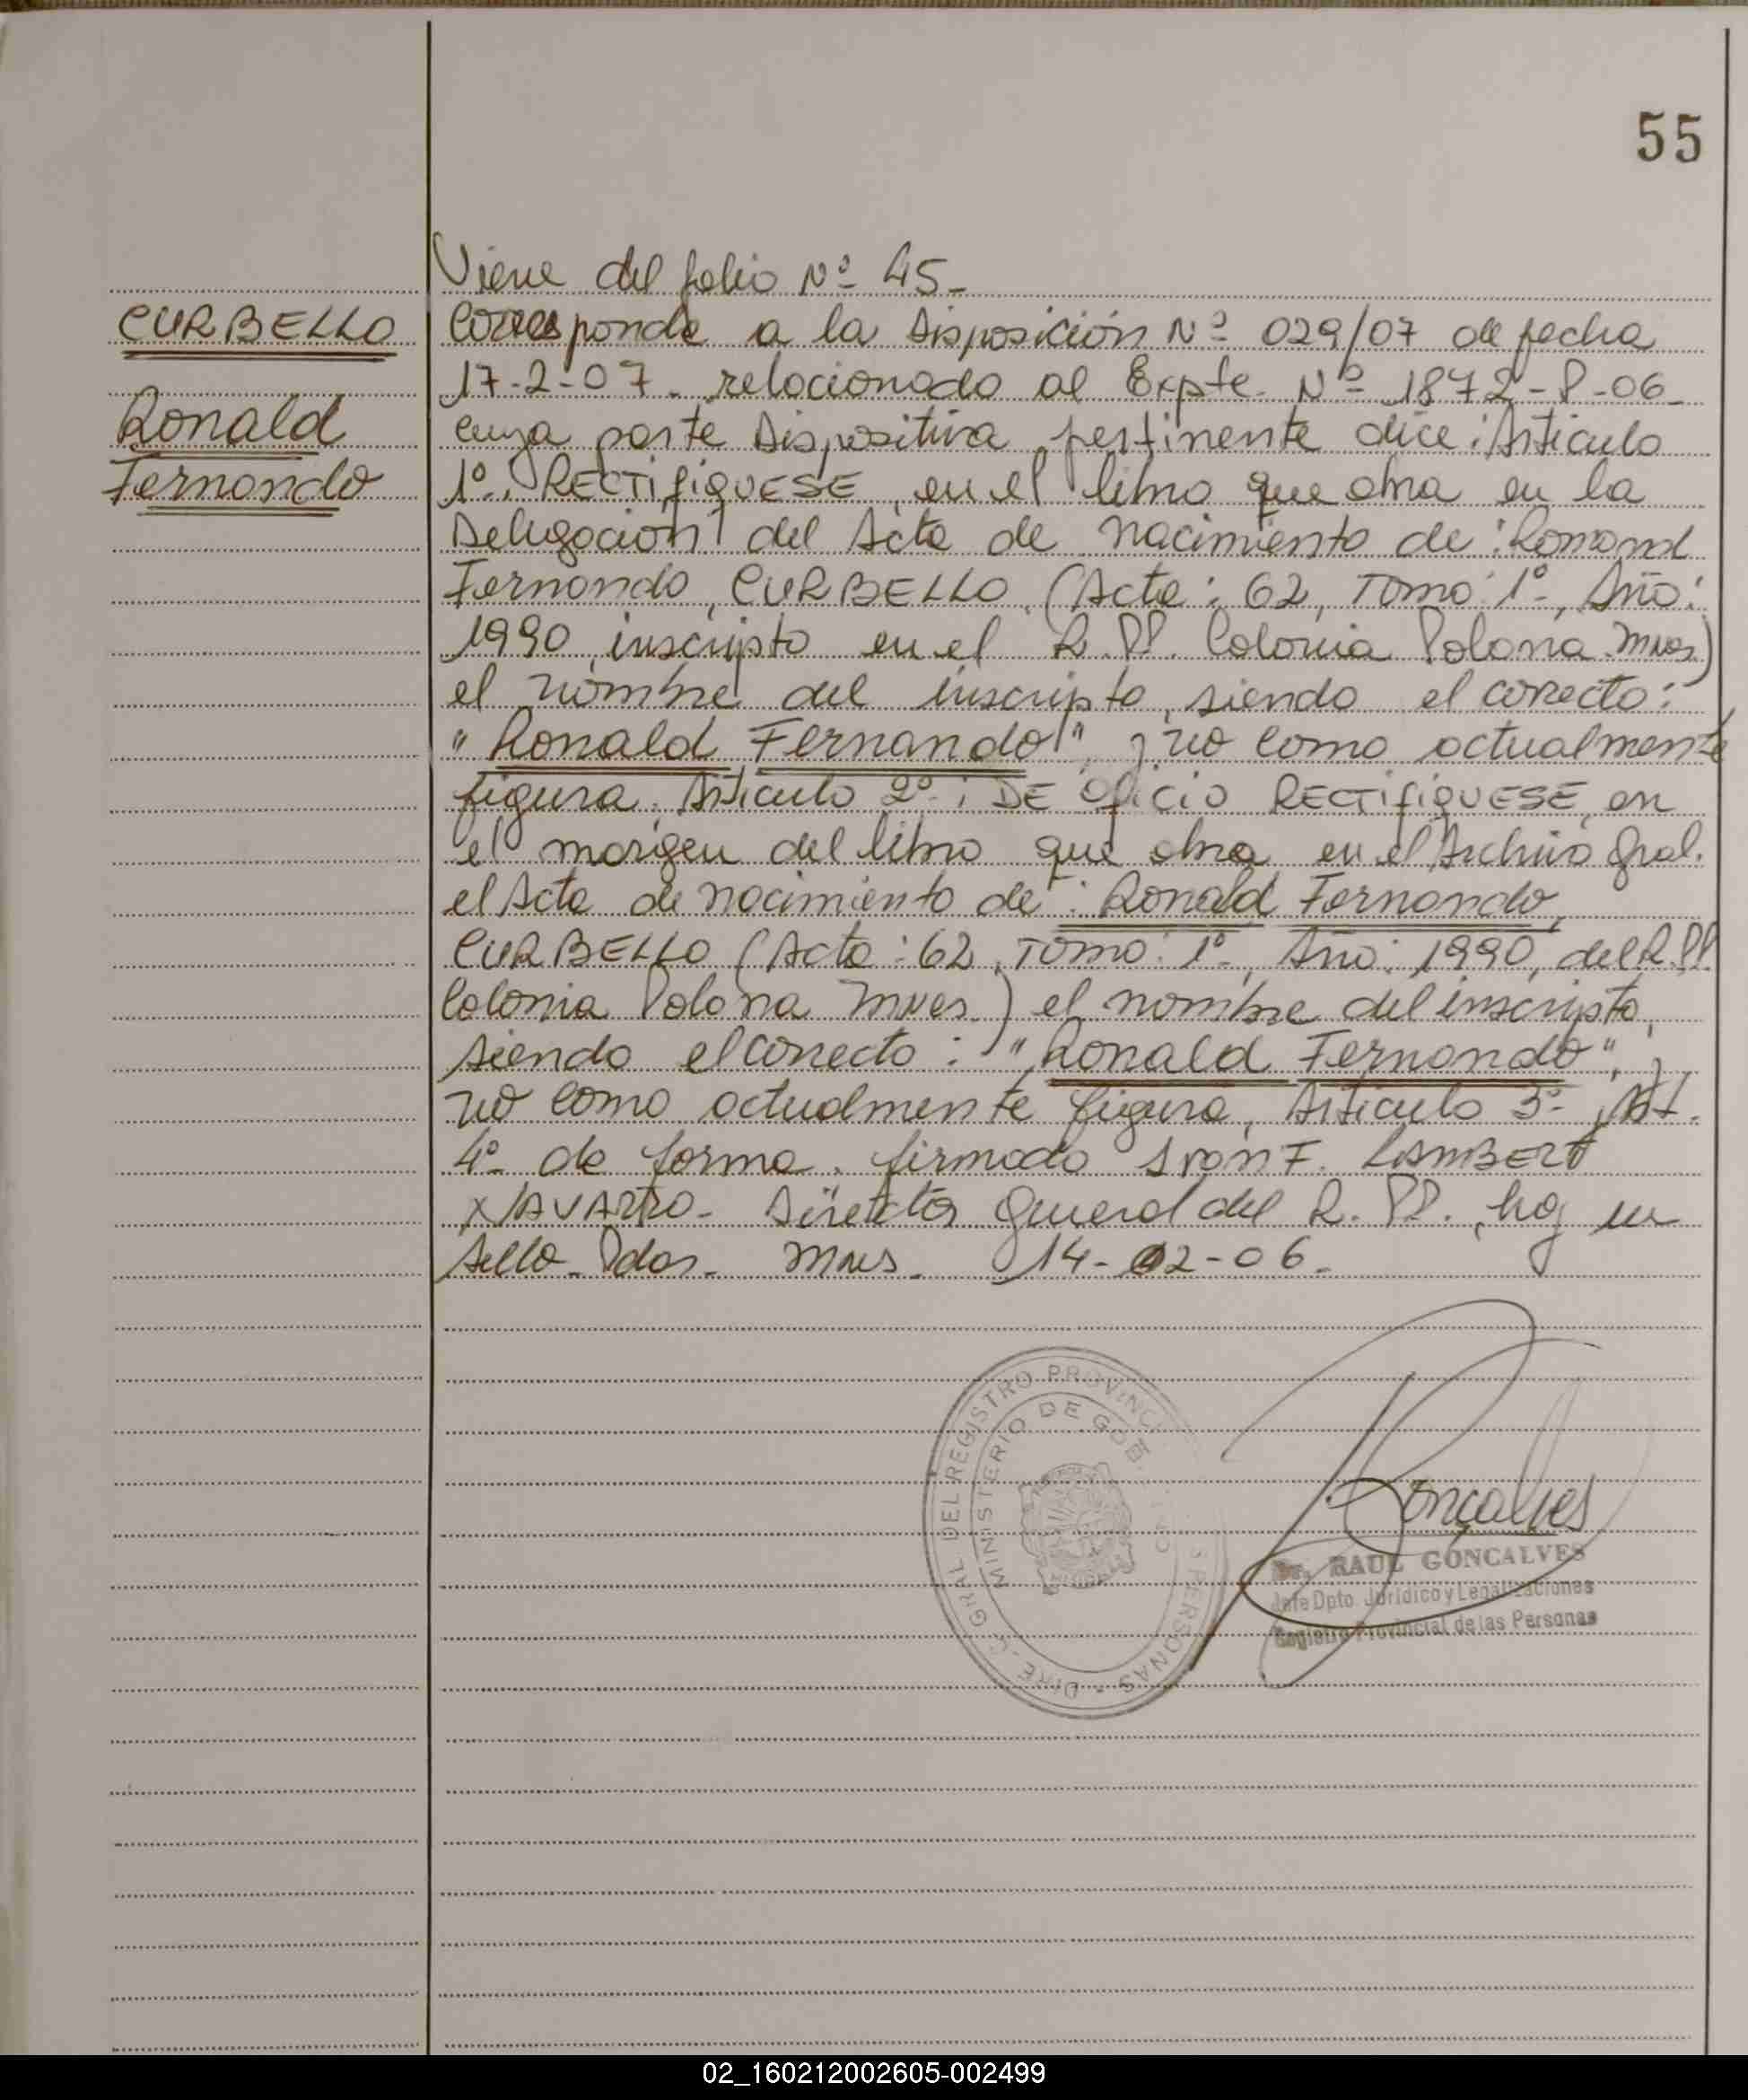 55
Viene del folio Nº 45-
CURBELLO
Corresponde a la Disposición Nº 029/07 de fecha
17-2-07. relacionado al Expte. Nº 1872-P-06-
Ronald
cuya parte Dispositiva pertinente dice: Artículo
Fernando
1º. RECTIFIQUESE, en el libro que obra en la
Delegación del Acta de nacimiento de: Romond
Fernando, CURBELLO, (Acta: 62, Tomo: 1º, Año:
1990, inscripto en el R.PP. Colonia Polona. Mnes)
el nombre del inscripto, siendo el correcto:
"Ronald Fernando" y no como actualmente
figura. Artículo 2º: DE OFICIO RECTIFIQUESE, en
el margen del libro que obra en el Archivo Gral.
el Acta de nacimiento de: Ronald Fernando,
CURBELLO (Acta: 62, Tomo: 1º, Año: 1990, del R.PP.
Colonia Polona Mnes.) el nombre del inscripto,
siendo el correcto: "Ronald Fernando", y
no como actualmente figura, Artículo 3º, Art.
4º de forma. firmado Ivan F. LAMBERT
NAVARRO- Director General del R. PP., hay un
sello- Pdas- Mnes- 14-02-06.
DIREC. GRAL DEL REGISTRO PROVINCI S PERSONAS -
MINISTERIO DE GOB
Goncalves
Dr. RAUL GONCALVES
Jefe Dpto. Jurídico y Legalizaciones
Registro Provincial de las Personas
02_160212002605-002499